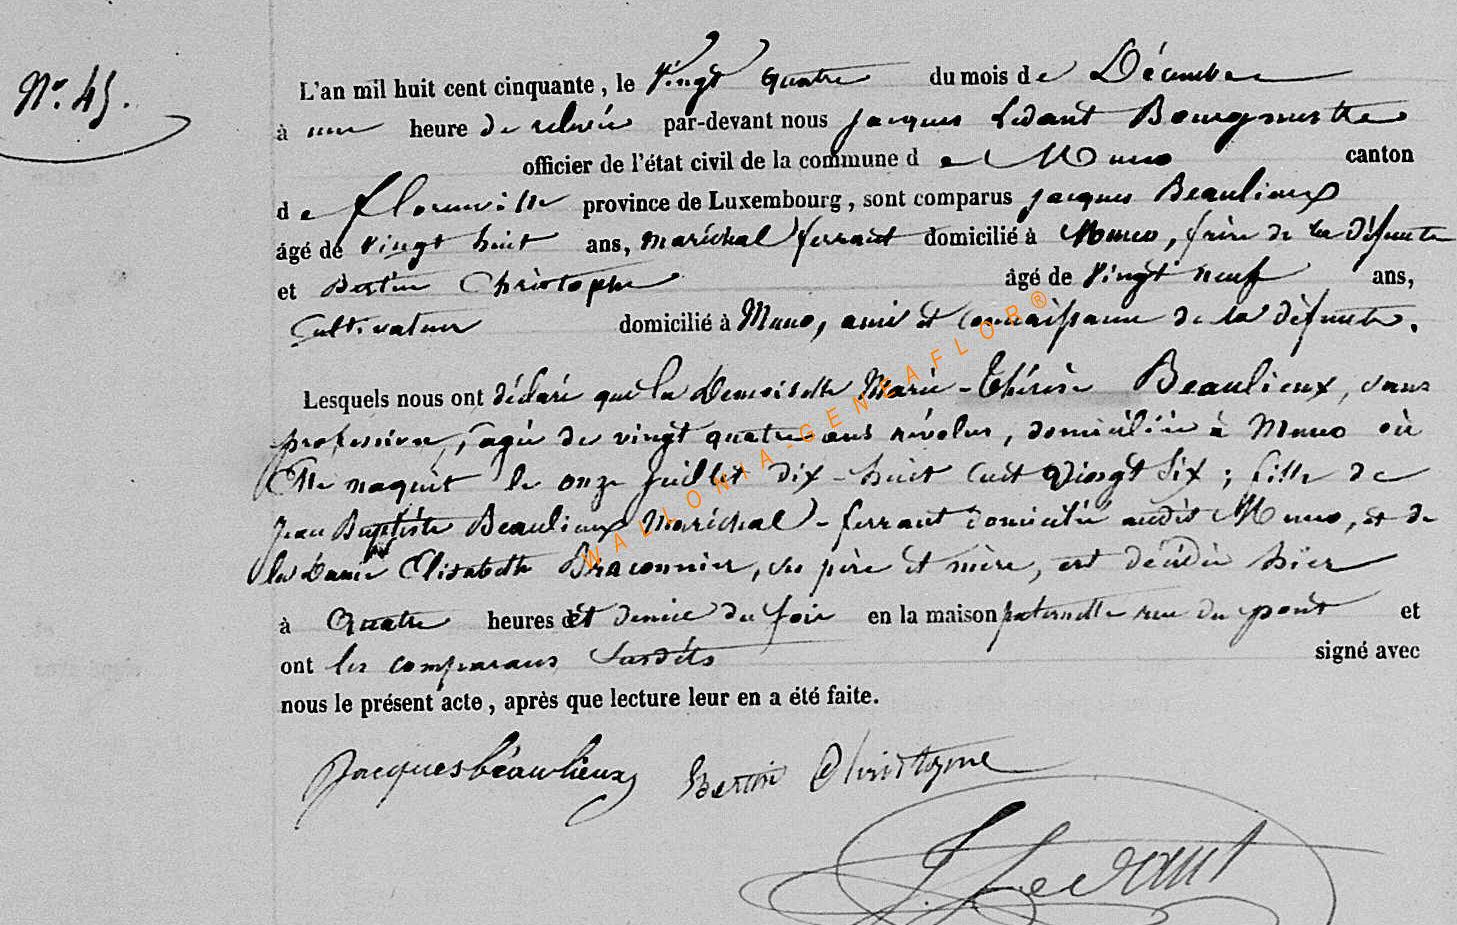 N° 45.
L'an mil huit cent cinquante, le Vingt quatre du mois de Décembre
à une heure de relevée par-devant nous Jacques Ledant Bourgmestre
officier de l'état civil de la commune de Muno canton
de Florenville province de Luxembourg, sont comparus Jacques Beaulieux
âgé de vingt huit ans, maréchal ferrant domicilié à Muno, frère de la défunte
et Bertin Christophe âgé de vingt neuf ans,
Cultivateur domicilié à Muno, ami et connaissance de la défunte.
Lesquels nous ont déclaré que la Demoiselle Marie-Thérèse Beaulieux, sans
profession, âgée de vingt quatre ans révolus, domiciliée à Muno où
Elle naquit le onze juillet dix-huit cent vingt six ; fille de
Jean Baptiste Beaulieux Maréchal-ferrant domicilié audit Muno, et de
la Dame Elisabeth Braconnier, ses père et mère, est décédée hier
à quatre heures et demie du soir en la maison paternelle rue du pont et
ont les comparans susdits signé avec
nous le présent acte, après que lecture leur en a été faite.
Jacques béaulieux Bertin Christophe
J. Ledant
WALLONIA-GENEAFLOR®